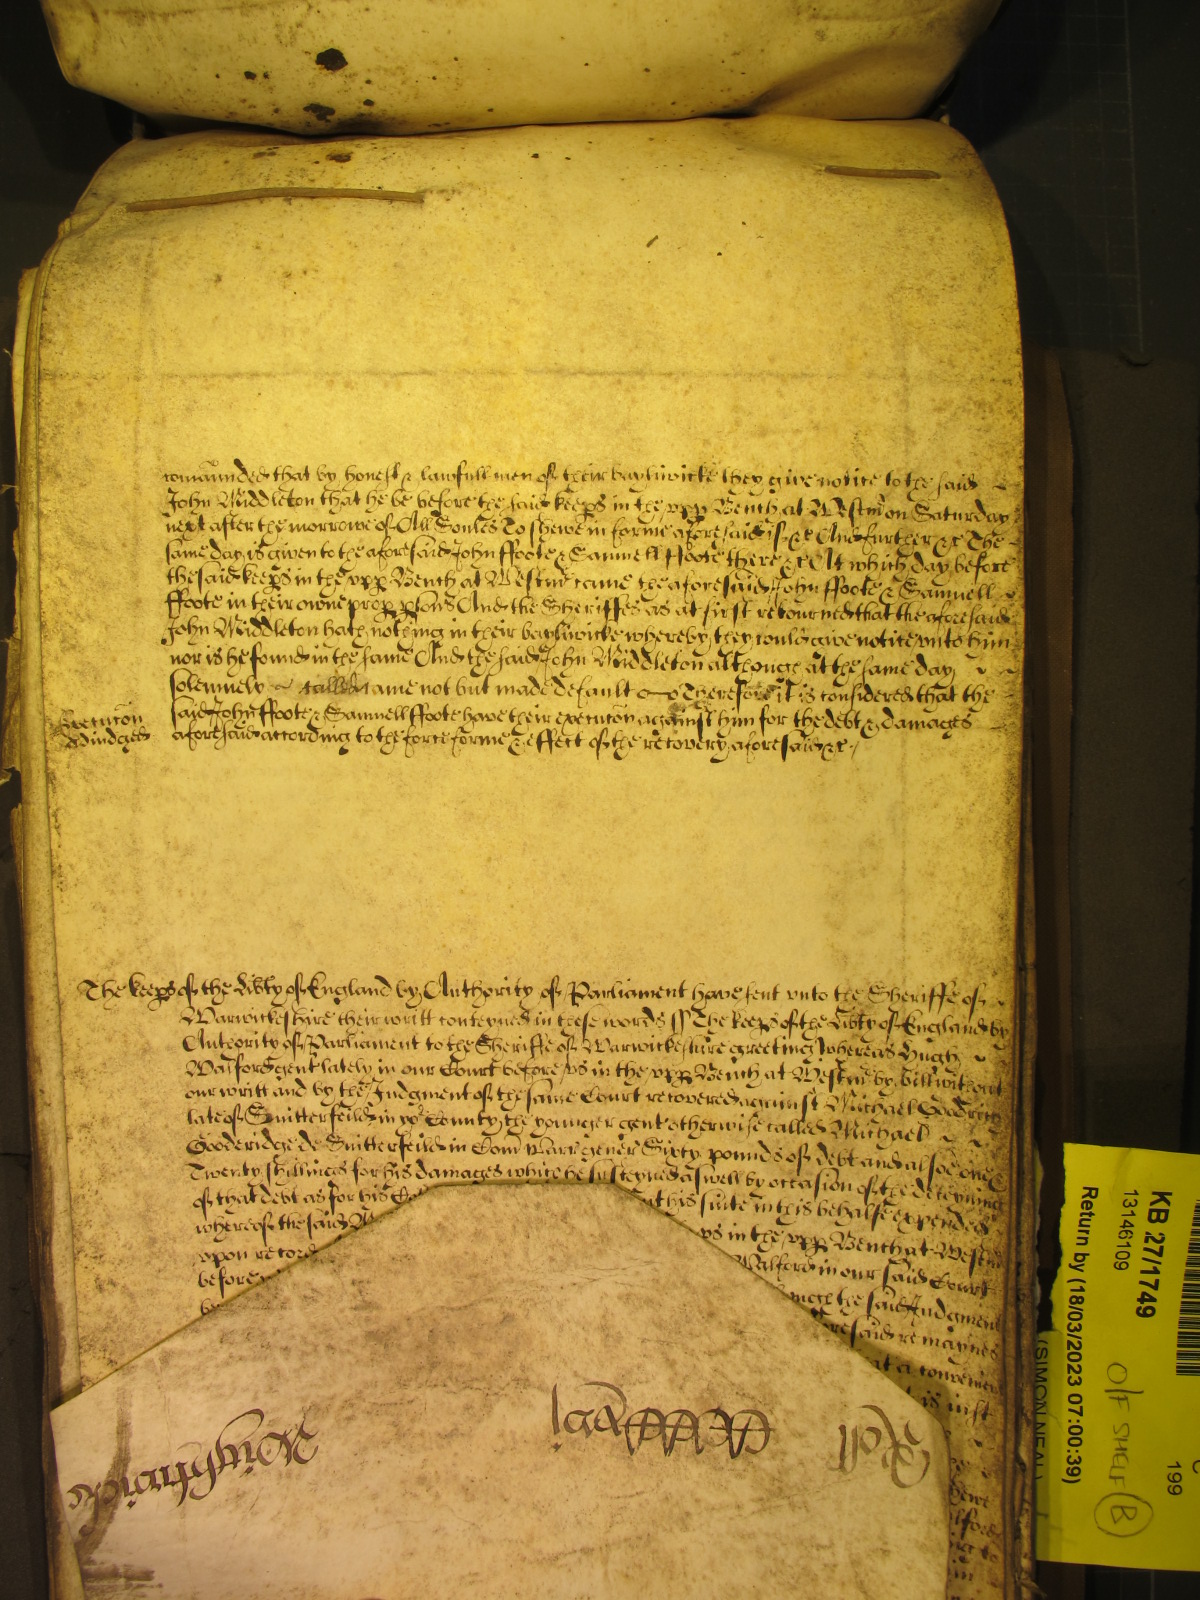 comaunded that by honest & lawfull men of their bayliwicke they give notice to the said
John Middleton that he be before the said keeps in the upp Bench at Westm on Saturday
next after the morrowe of All Soules To shewe in forme aforesaid if &c And further &c The
same day is given to the aforesaid John ffoote & Samuell ffoote there &c At which day before
the said keeps in the upp Bench at Westm came the aforesaid John ffoote & Samuell
ffoote in their owne prop psons And the Sheriffes as at first retourned that the aforesaid
John Middleton hath nothing in their bayliwicke whereby they could give notice unto him
nor is he found in the same And the said John Middleton although at the same day
solemnely called came not but made default Therefore it is considered that the
said John ffoote & Samuell ffoote have their executon against him for the debt & damages
aforesaid according to the force forme & effect of the recovery aforesaid &c
Executon
Adiudged
The keeps of the Libty of England by Authority of Parliament have sent unto the Sheriffe of
Warwickeshire their writt conteyned in these words ss The keeps of the Libty of England by
Authority of Parliament to the Sheriffe of Warwickeshire greeting Whereas Hugh
Walford gent lately in our Court before us in the upp Bench at Westm by bill without
our writt and by the Judgment of the same Court recovered against Michael Goodridg
late of Snitterfeild in yor County the younger gent otherwise called Michael
Gooderidge de Snitterfeild in Com Warr gener Sixty pounds of debt and alsoe one &
Twenty shillings for his damages which he susteyned aswell by occasion of the deteyning
of that debt as for his this suite in this behalfe expended
whereof the said us in the upp Bench at Westm
upon record Walford in our said Court
before the said Judgment
aforesaid remaynes
at a convenient
is iust
Roll
Wightwicke
KB 27/1749
13146109
Return by (18/03/2023 07:00:39)
(SIMON NEAL)
O/F SHELF B
199